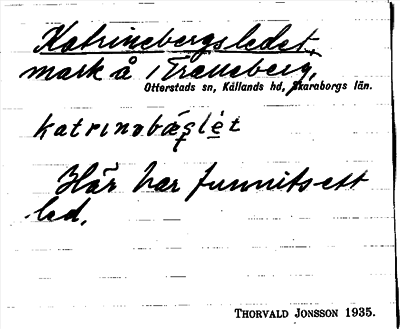 Katrinebergsledet,
mark å i Traneberg,
Otterstads sn, Kållands hd, Skaraborgs län.
katrinəbæʂlèt
Här har funnits ett
led.
THORVALD JONSSON 1935.